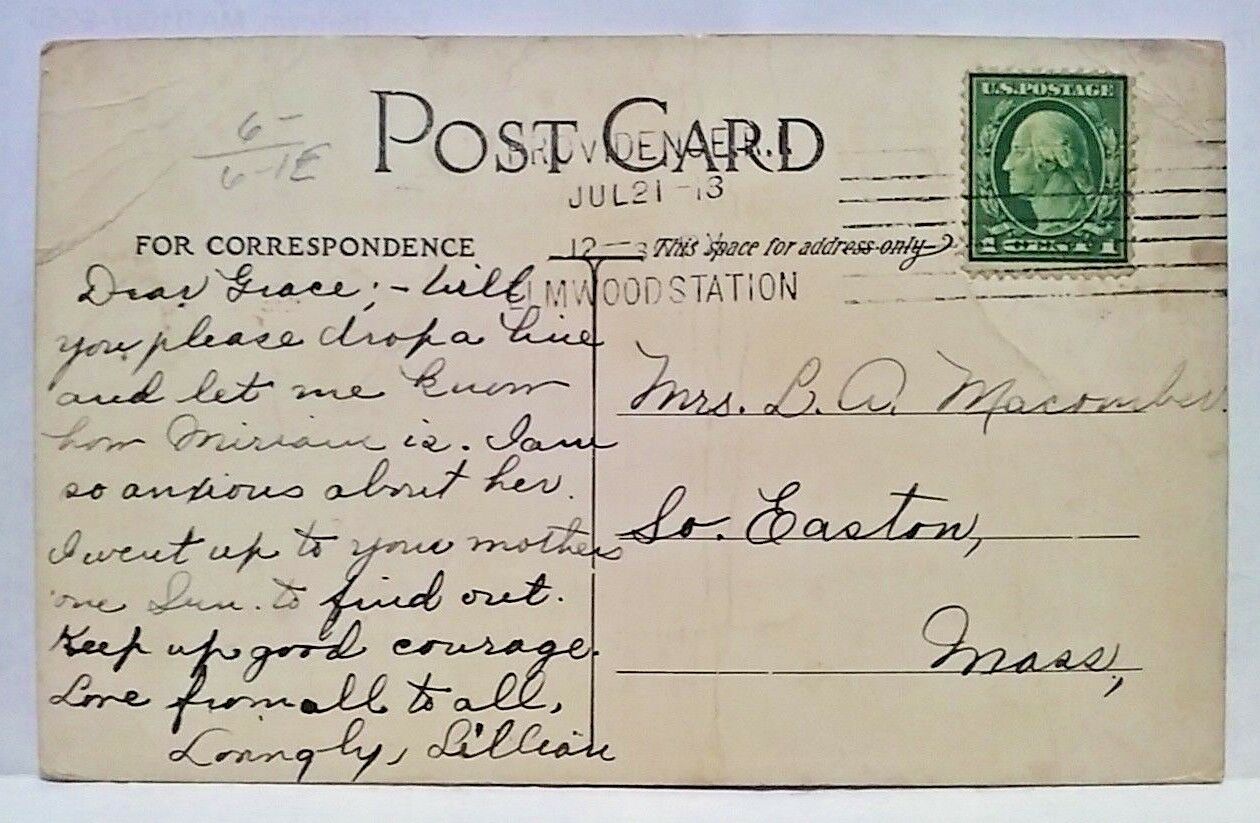 U.S. POSTAGE
1 CENT 1
6-
6-1E
POST CARD
PROVIDENCE R.I.
JUL 21 - 13
12 - 3
ELMWOOD STATION
FOR CORRESPONDENCE
This space for address only
Dear Grace; - Will
you please drop a line
and let me know
how Miriam is. I am
so anxious about her.
I went up to your mothers
one Sun. to find out.
Keep up good courage.
Love from all to all,
Lovingly, Lillian
Mrs. L. A. Macomber.
So. Easton,
Mass,